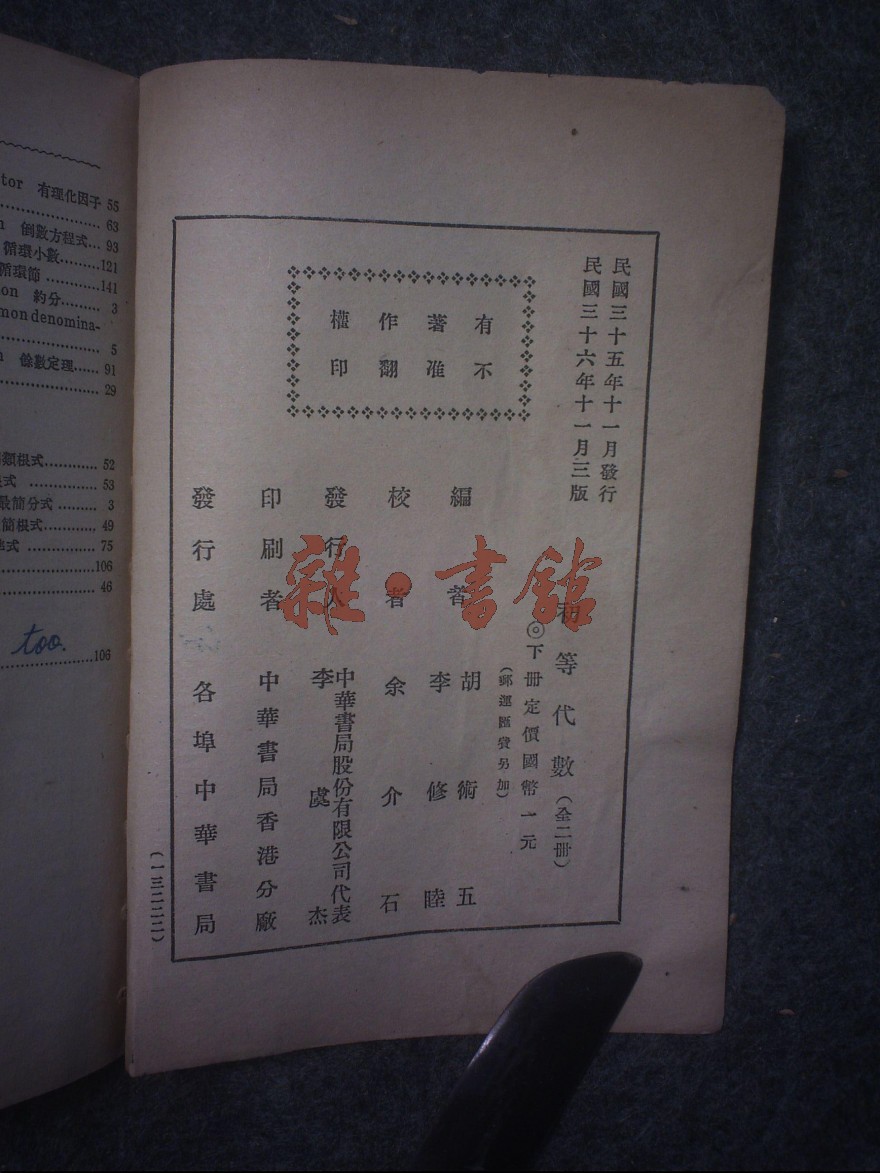 民國三十五年十一月發行
民國三十六年十一月三版
有著作權
不准翻印
初等代數（全二冊）
◎下冊定價國幣一元
（郵運匯費另加）
編者 胡術五
李修睦
校者 余介石
發行人 中華書局股份有限公司代表
李虞杰
印刷者 中華書局香港分廠
發行處 各埠中華書局
（一三二二二）
雜·書館
tor 有理化因子 55
63
倒數方程式... 93
循環小數.........121
循環節............141
on 約分......... 3
mon denomina-
5
餘數定理...... 91
29
類根式............ 52
式............ 53
最簡分式......... 3
簡根式............ 49
式............ 75
106
46
too.
106